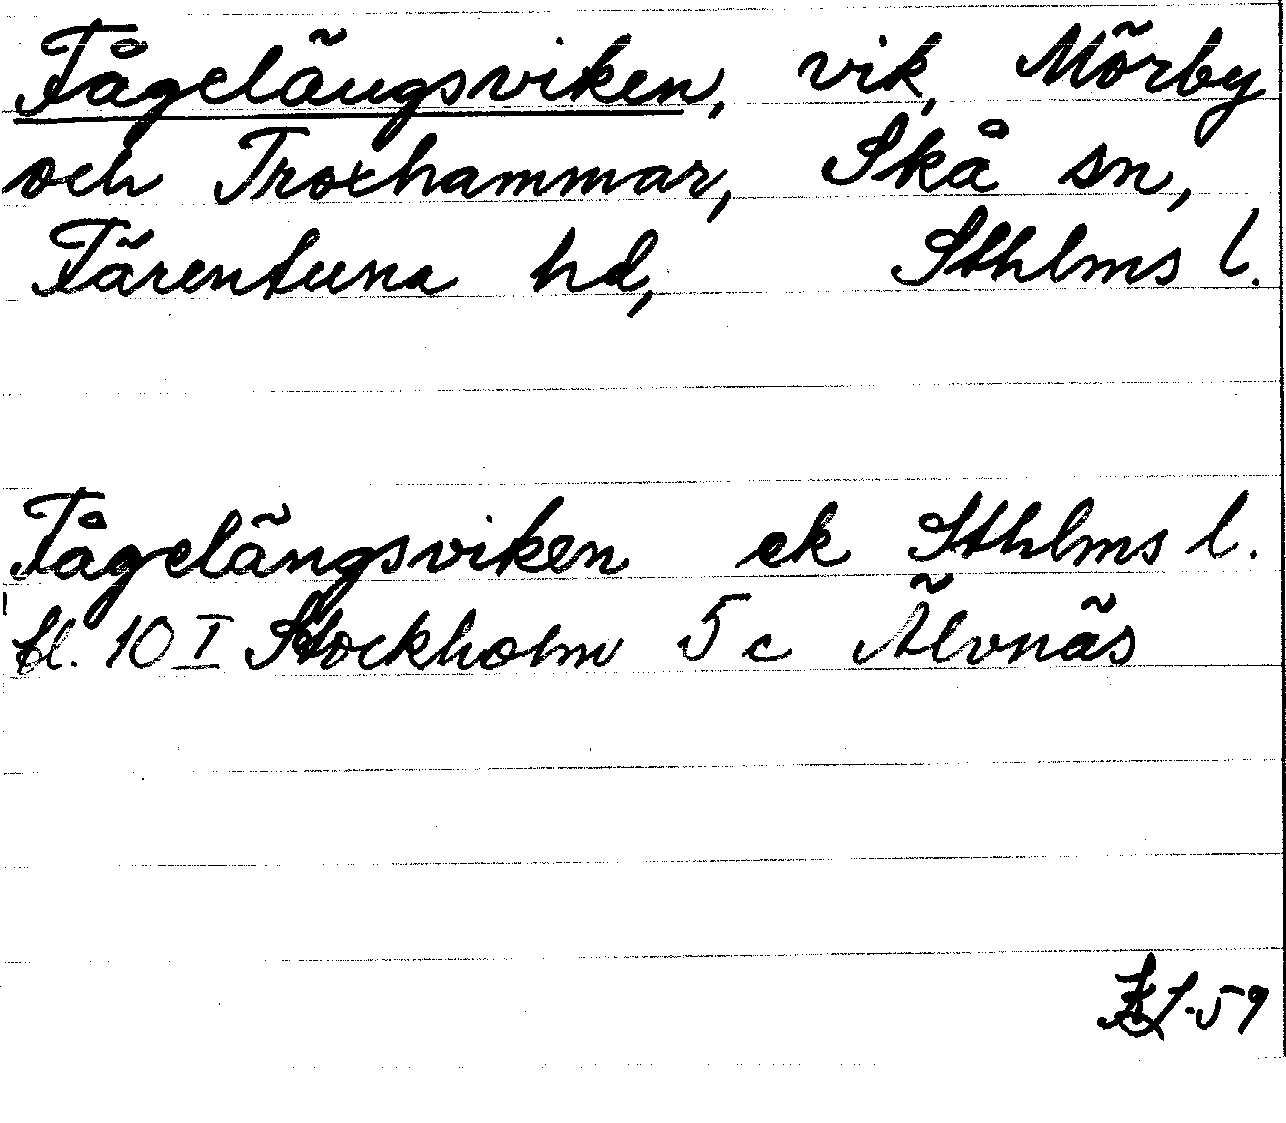 Fågelängsviken, vik, Mörby
och Troxhammar, Skå sn,
Färentuna hd, Sthlms l.
Fågelängsviken ek Sthlms l.
bl. 10 I Stockholm 5 c Älvnäs
-59